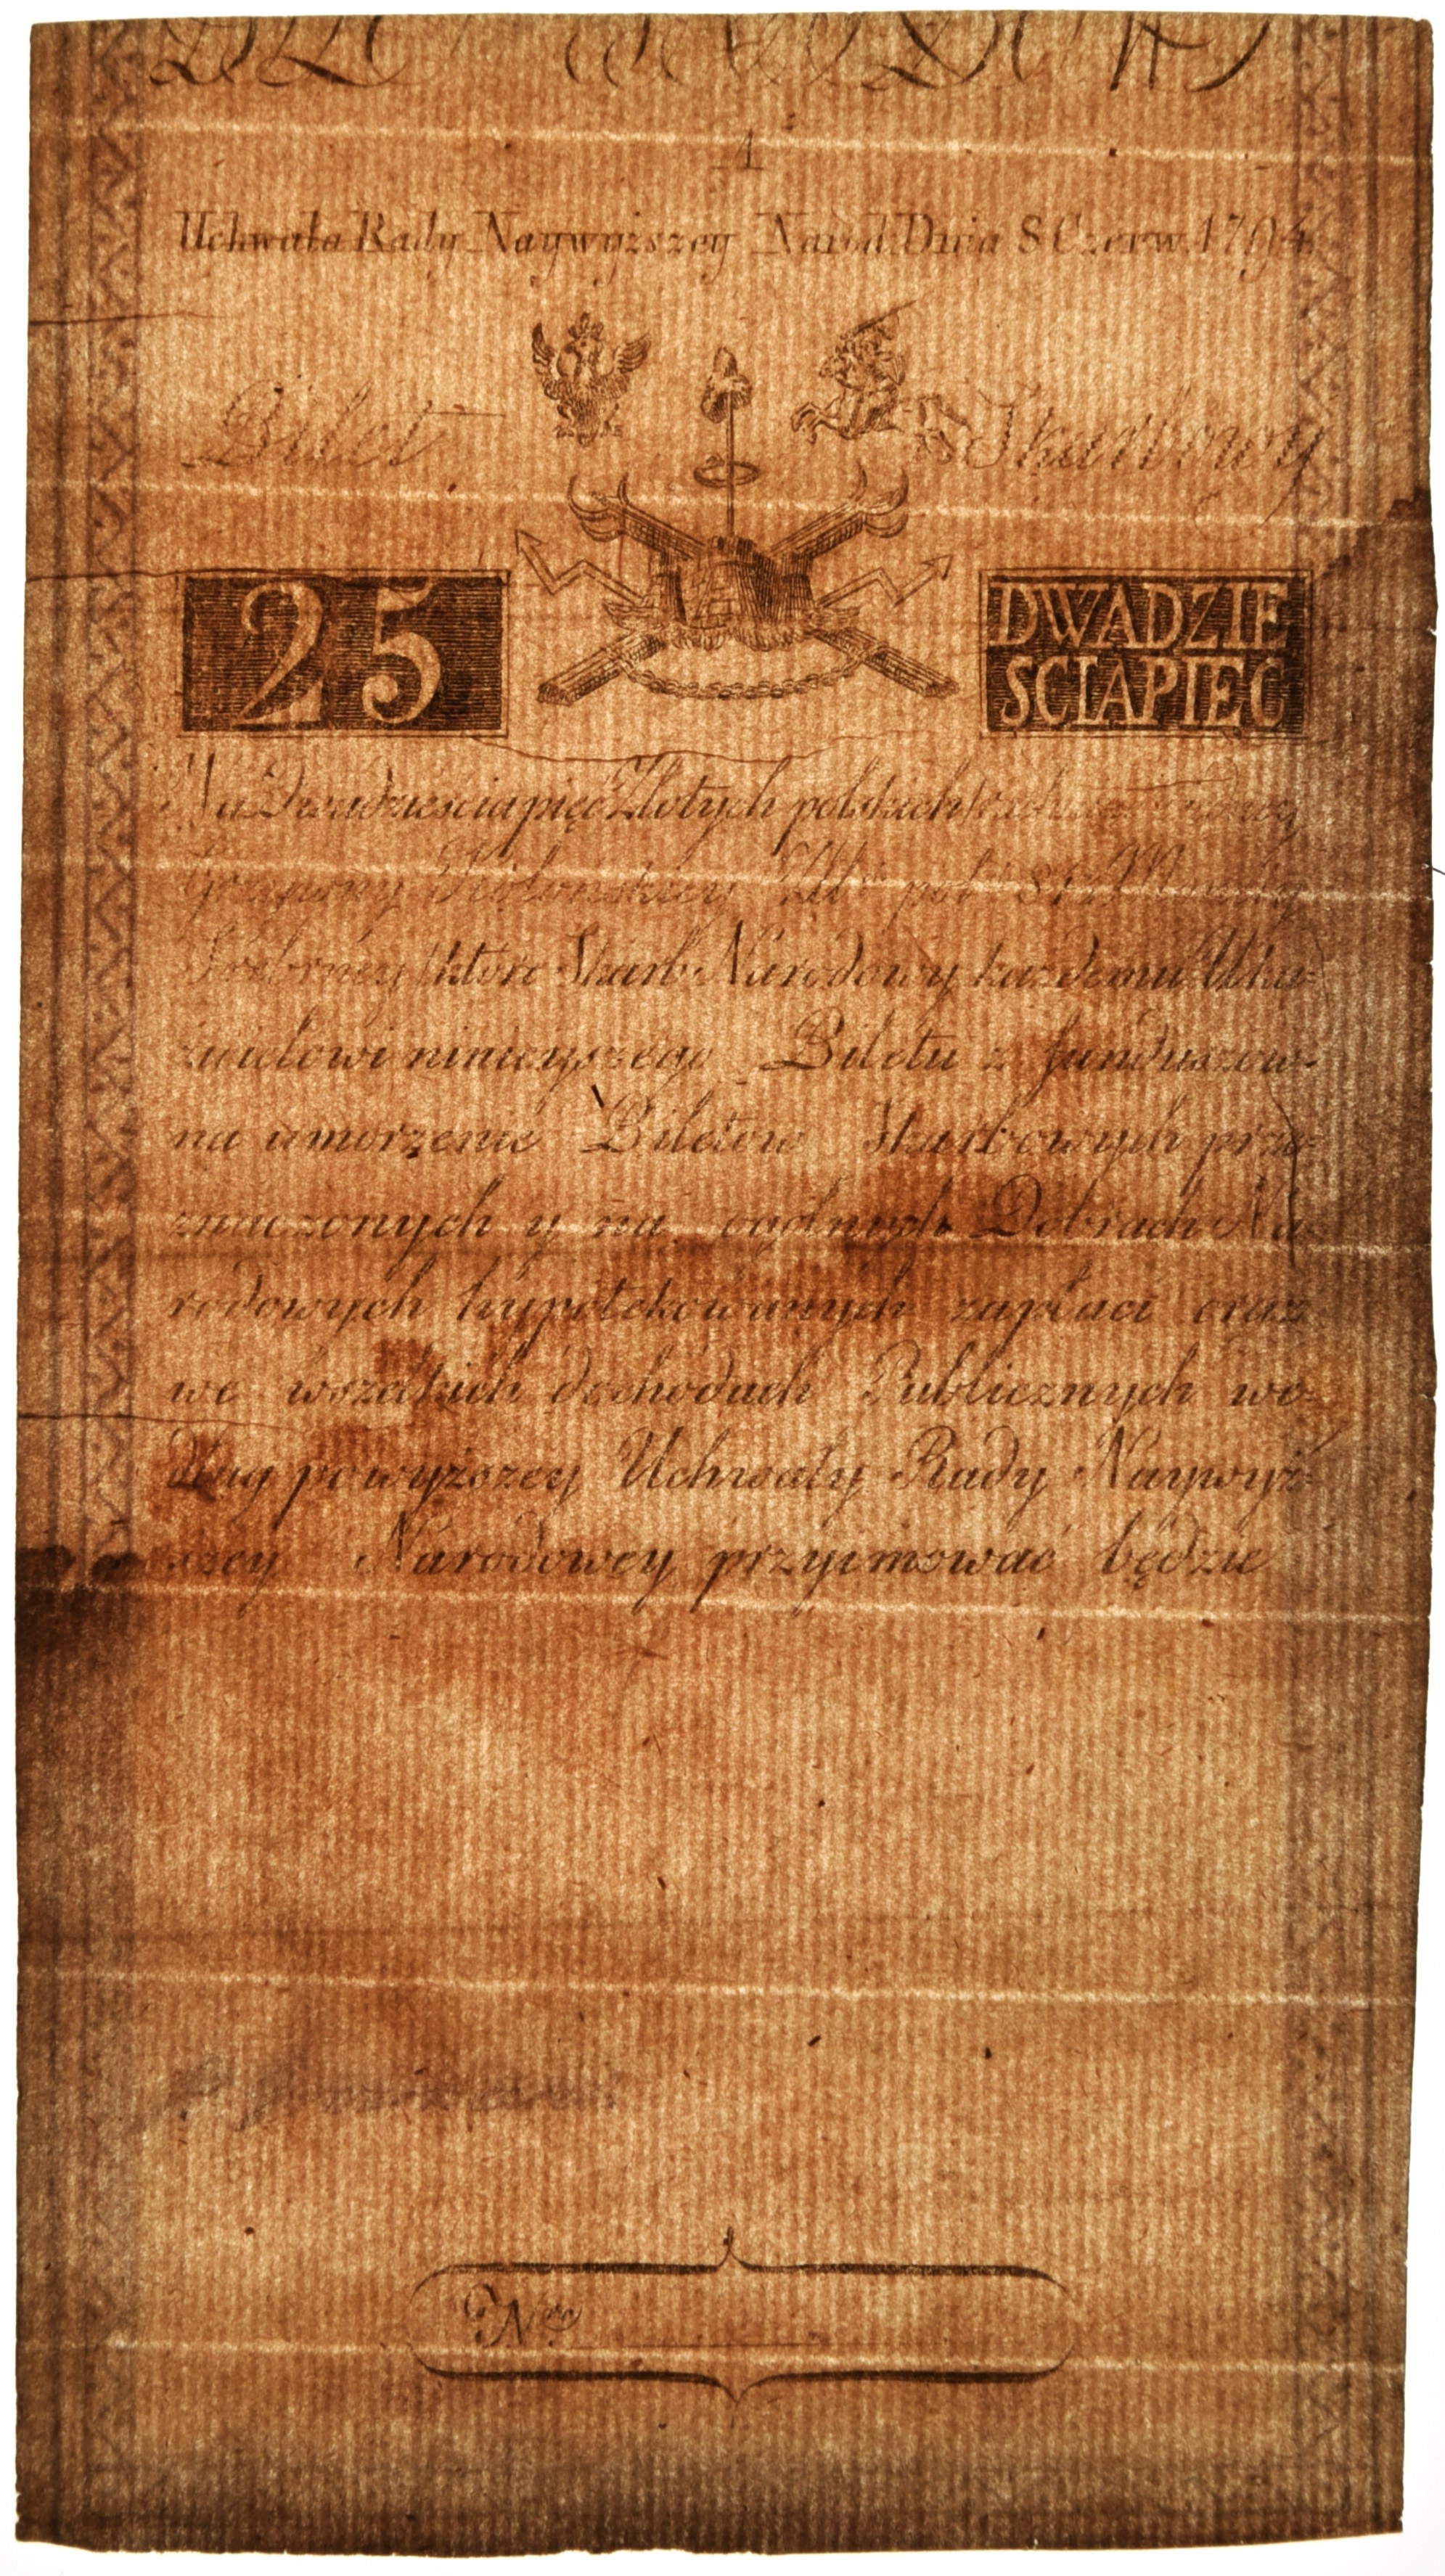 A
Uchwała Rady Naywyższey Narod. Dnia 8 Czerw. 1794.
Bilet Skarbowy
25
DWADZIE
SCIAPIĘC
Na Dwadzieściapięć Złotych polskich
Zł: pol: 84
Srebrney które Skarb Narodowy każdemu Uka-
zicielowi ninieyszego Biletu z funduszow-
na umorzenie Biletow Skarbowych prze-
znaczonych y na ogólnych Dobrach Na
rodowych hypotekowanych zapłaci oraz
we wszelkich dochodach Publicznych we-
dług powyższey Uchwały Rady Naywyż-
szey Narodowey przyimować będzie
Nro